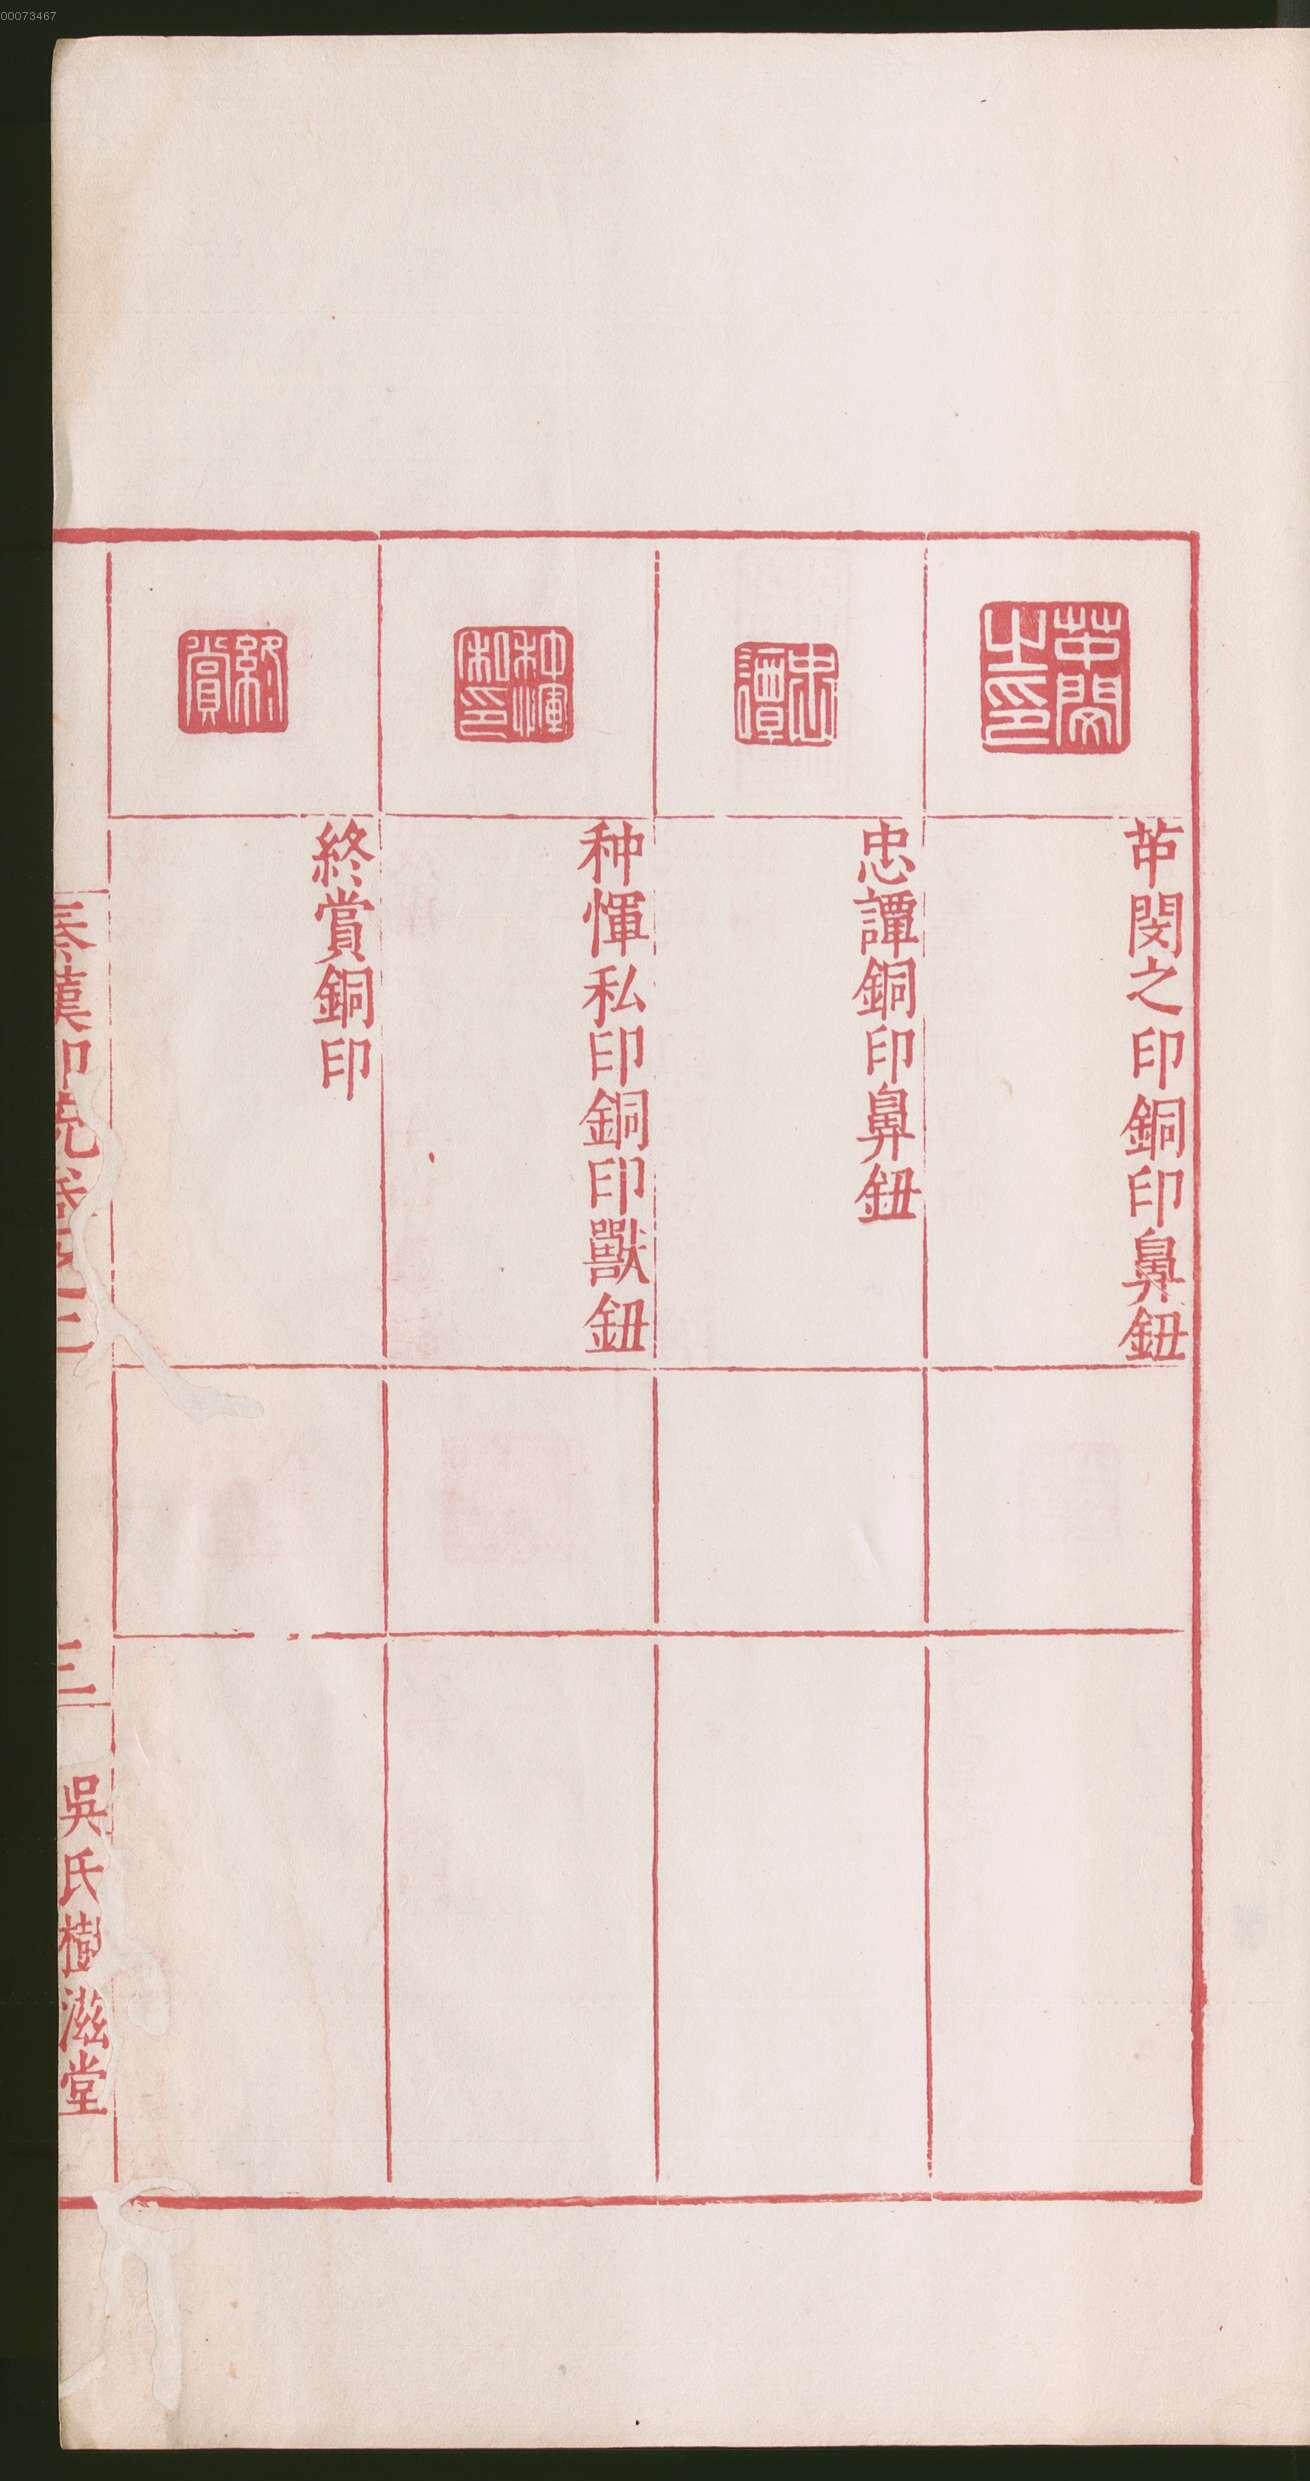 00073467
芇閔之印
芇閔之印銅印鼻鈕
忠譚
忠譚銅印鼻鈕
种惲私印
种惲私印銅印獸鈕
終賞
終賞銅印
秦漢印
三
吳氏樹滋堂